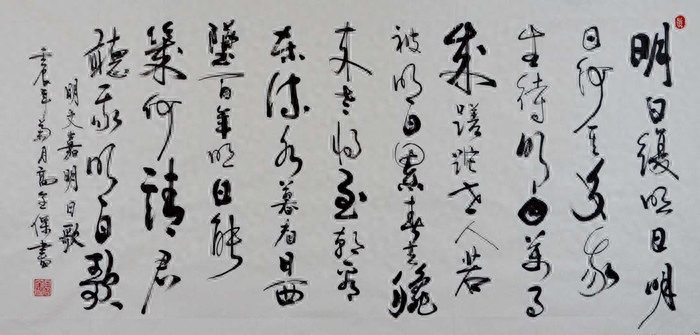 明日復明日明
日何其多我
生待明日萬事
成蹉跎世人若
被明日累春去秋
來老將至朝看
東流水暮看日西
墜百年明日能
幾何請君
聽我明日歌
明文嘉明日歌
壬辰年菊月高金保書